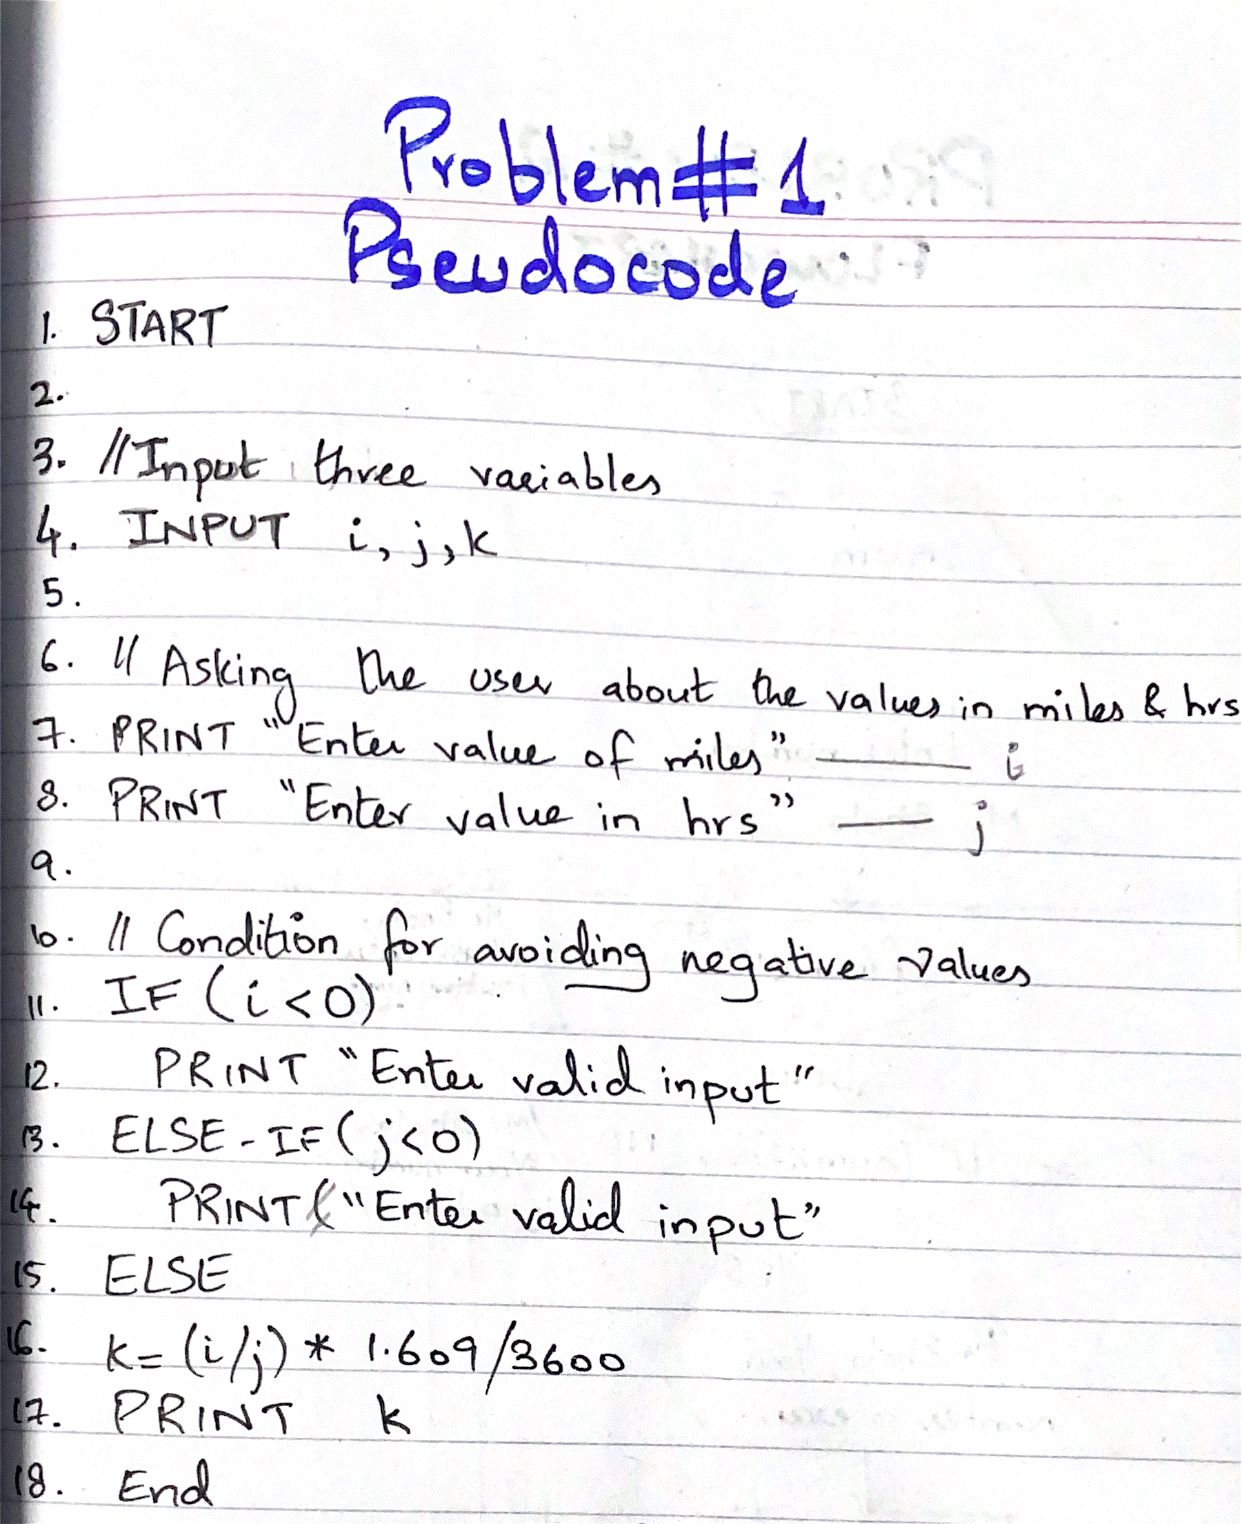 Problem # 1
Pseudocode
1. START
2.
3. //Input three variables
4. INPUT i, j, k
5.
6. // Asking the user about the values in miles & hrs
7. PRINT "Enter value of miles" —— i
8. PRINT "Enter value in hrs" —— j
9.
10. // Condition for avoiding negative values
11. IF (i<0)
12. PRINT "Enter valid input"
13. ELSE-IF (j<0)
14. PRINT "Enter valid input"
15. ELSE
16. k= (i/j) * 1.609/3600
17. PRINT k
18. End